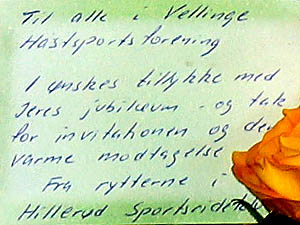 Til alle i Vellinge
Hästsportsforening
I ønskes tillykke med
Jeres jubilæum - og tak
for invitationen og den
varme modtagelse
Fra rytterne i
Hillerød